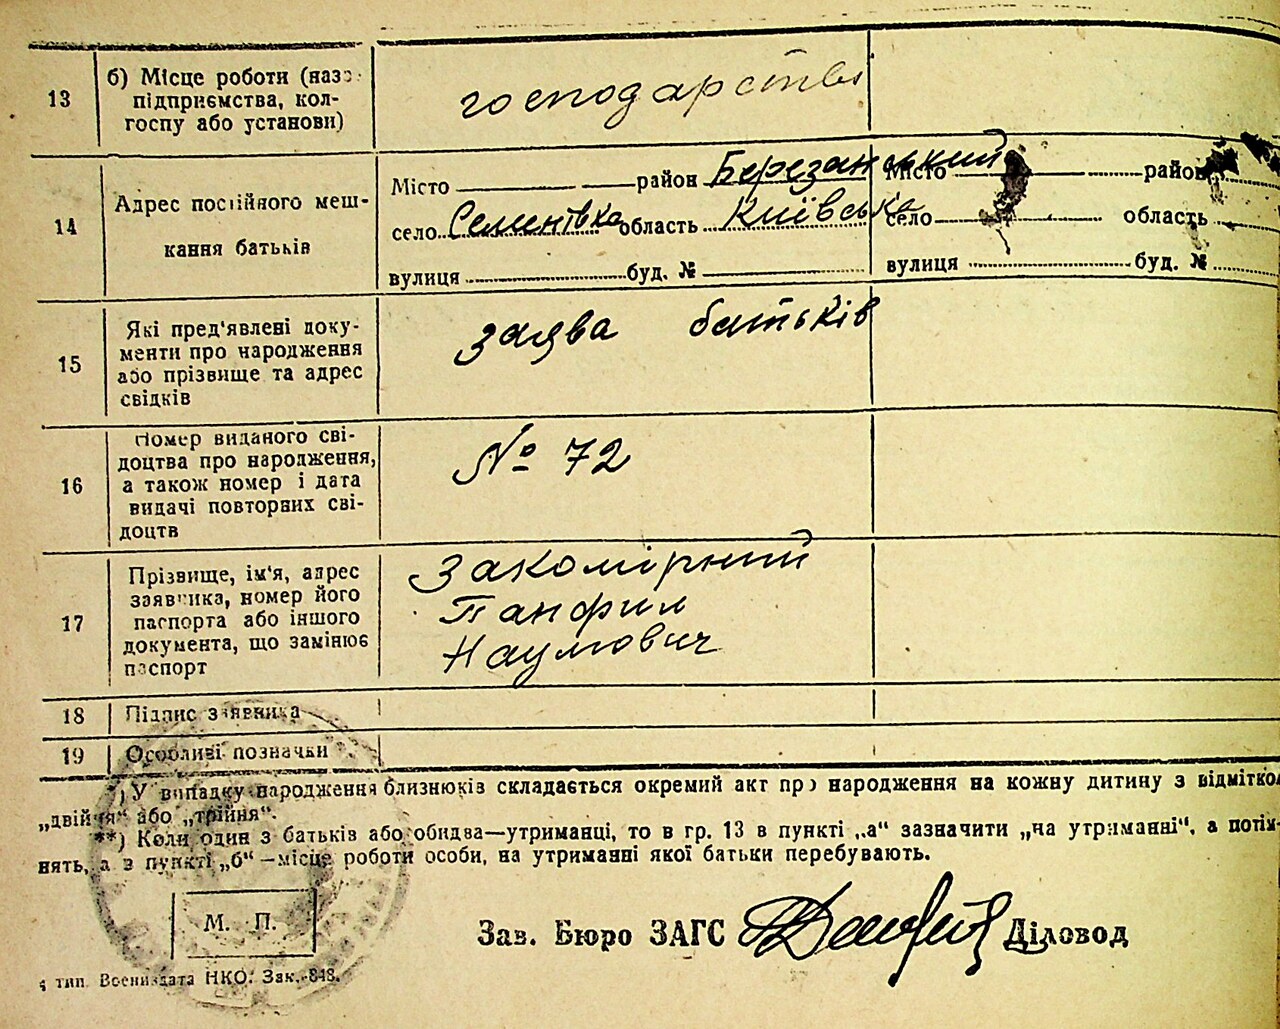 13 б) Місце роботи (назва підприємства, колгоспу або установи) господарстві
14 Адрес постійного мешкання батьків
Місто район Березанський
село Семенівка область Київська
вулиця буд. №
Місто район
село область
вулиця буд. №
15 Які пред'явлені документи про народження або прізвище та адрес свідків
заява батьків
16 Номер виданого свідоцтва про народження, а також номер і дата видачі повторних свідоцтв
№ 72
17 Прізвище, ім'я, адрес заявника, номер його паспорта або іншого документа, що замінює паспорт
Закомірний
Панфил
Наумович
18 Підпис заявника
19 Особливі позначки
*) У випадку народження близнюків складається окремий акт про народження на кожну дитину з відміткою
„двійня“ або „трійня“.
**) Коли один з батьків або обидва—утриманці, то в гр. 13 в пункті „а“ зазначити „на утриманні“, а
нять, а в пункті „б“—місце роботи особи, на утриманні якої батьки перебувають.
М. П.
Зав. Бюро ЗАГС Діловод
тип. Воениздата НКО. Зак. 848.